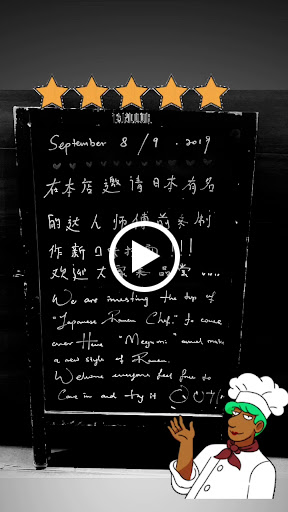 September 8/9. 2019
在本店邀请日本有名
的达人师傅前来制
作新口
欢迎大家来品尝....
We are inviting the top of
"Japanese Ramen Chef." to come
over Here "Megumi" and make
a new style of Ramen.
Welcome everyone feel free to
Come in and try it